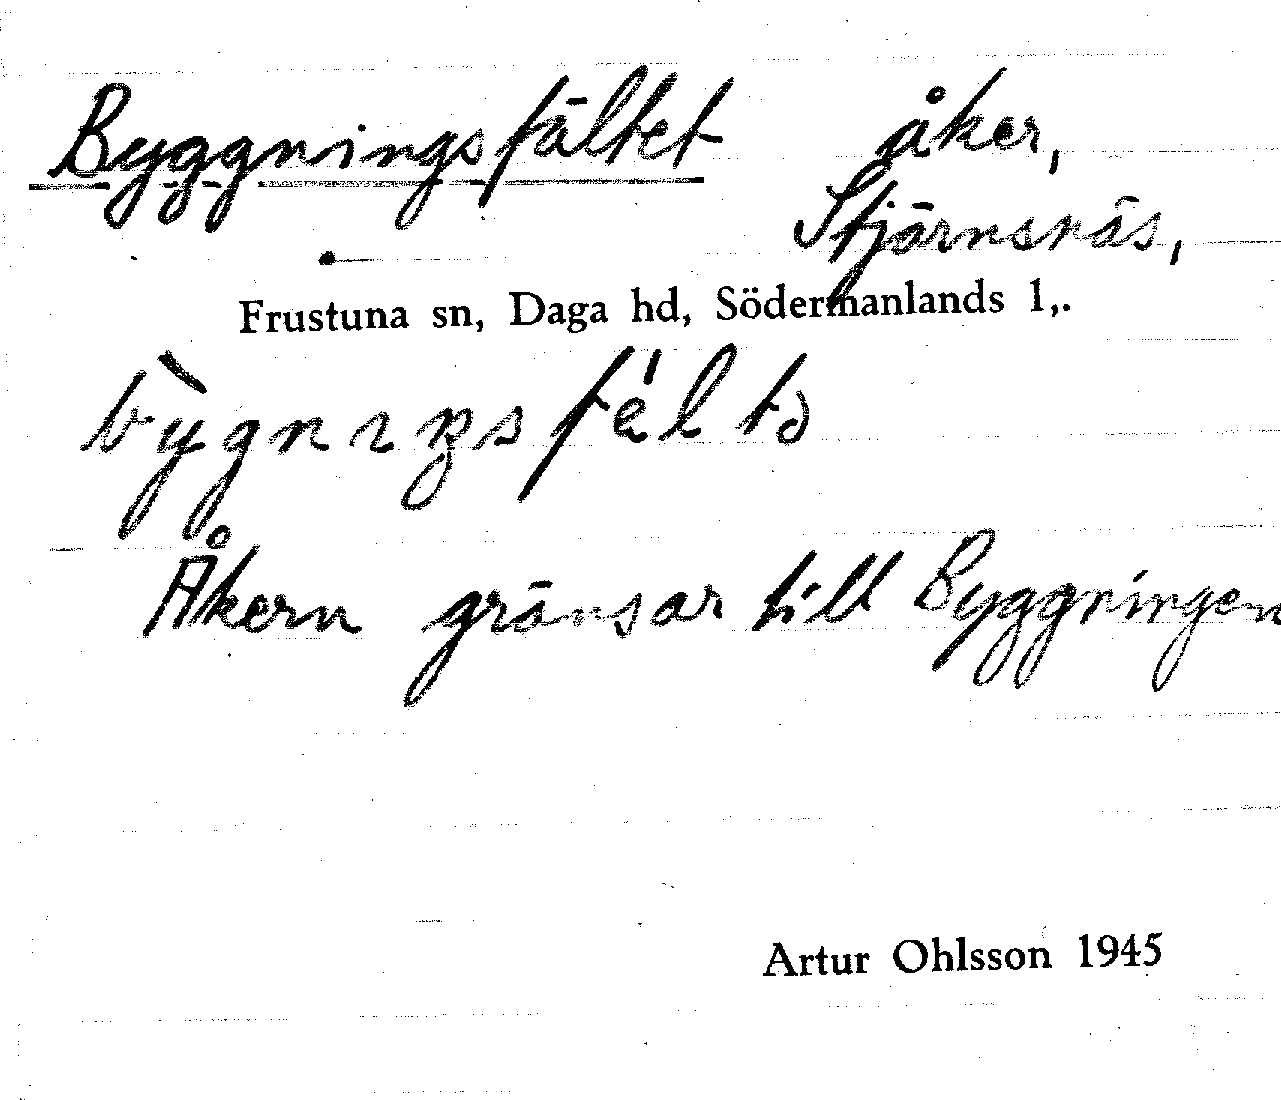 Byggningsfältet åker,
Stjärnsnäs,
Frustuna sn, Daga hd, Södermanlands l,.
Åkern gränsar till Byggningen
Artur Ohlsson 1945